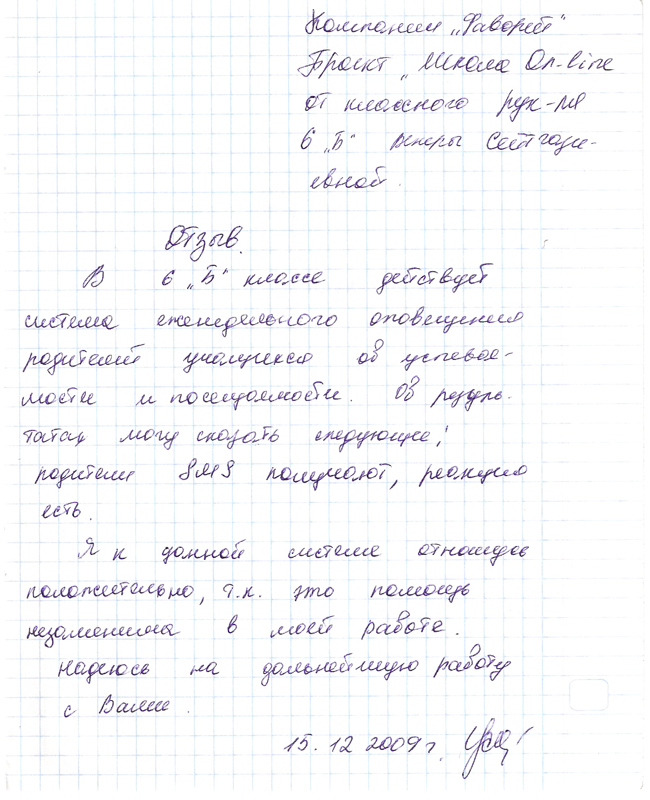 Компании „Фаворит"
Проект „Школа On-line
от классного рук-ля
6 „Б" Венеры Сейтгази-
евной.
Отзыв.
В 6 „Б" классе действует
система еженедельного оповещения
родителей учащихся об успевае-
мости и посещаемости. Об резуль-
татах могу сказать следующее:
родители SMS получают, реакция
есть.
Я к данной системе отношусь
положительно, т.к. это помощь
незаменима в моей работе.
Надеюсь на дальнейшую работу
с Вами.
15.12 2009 г.